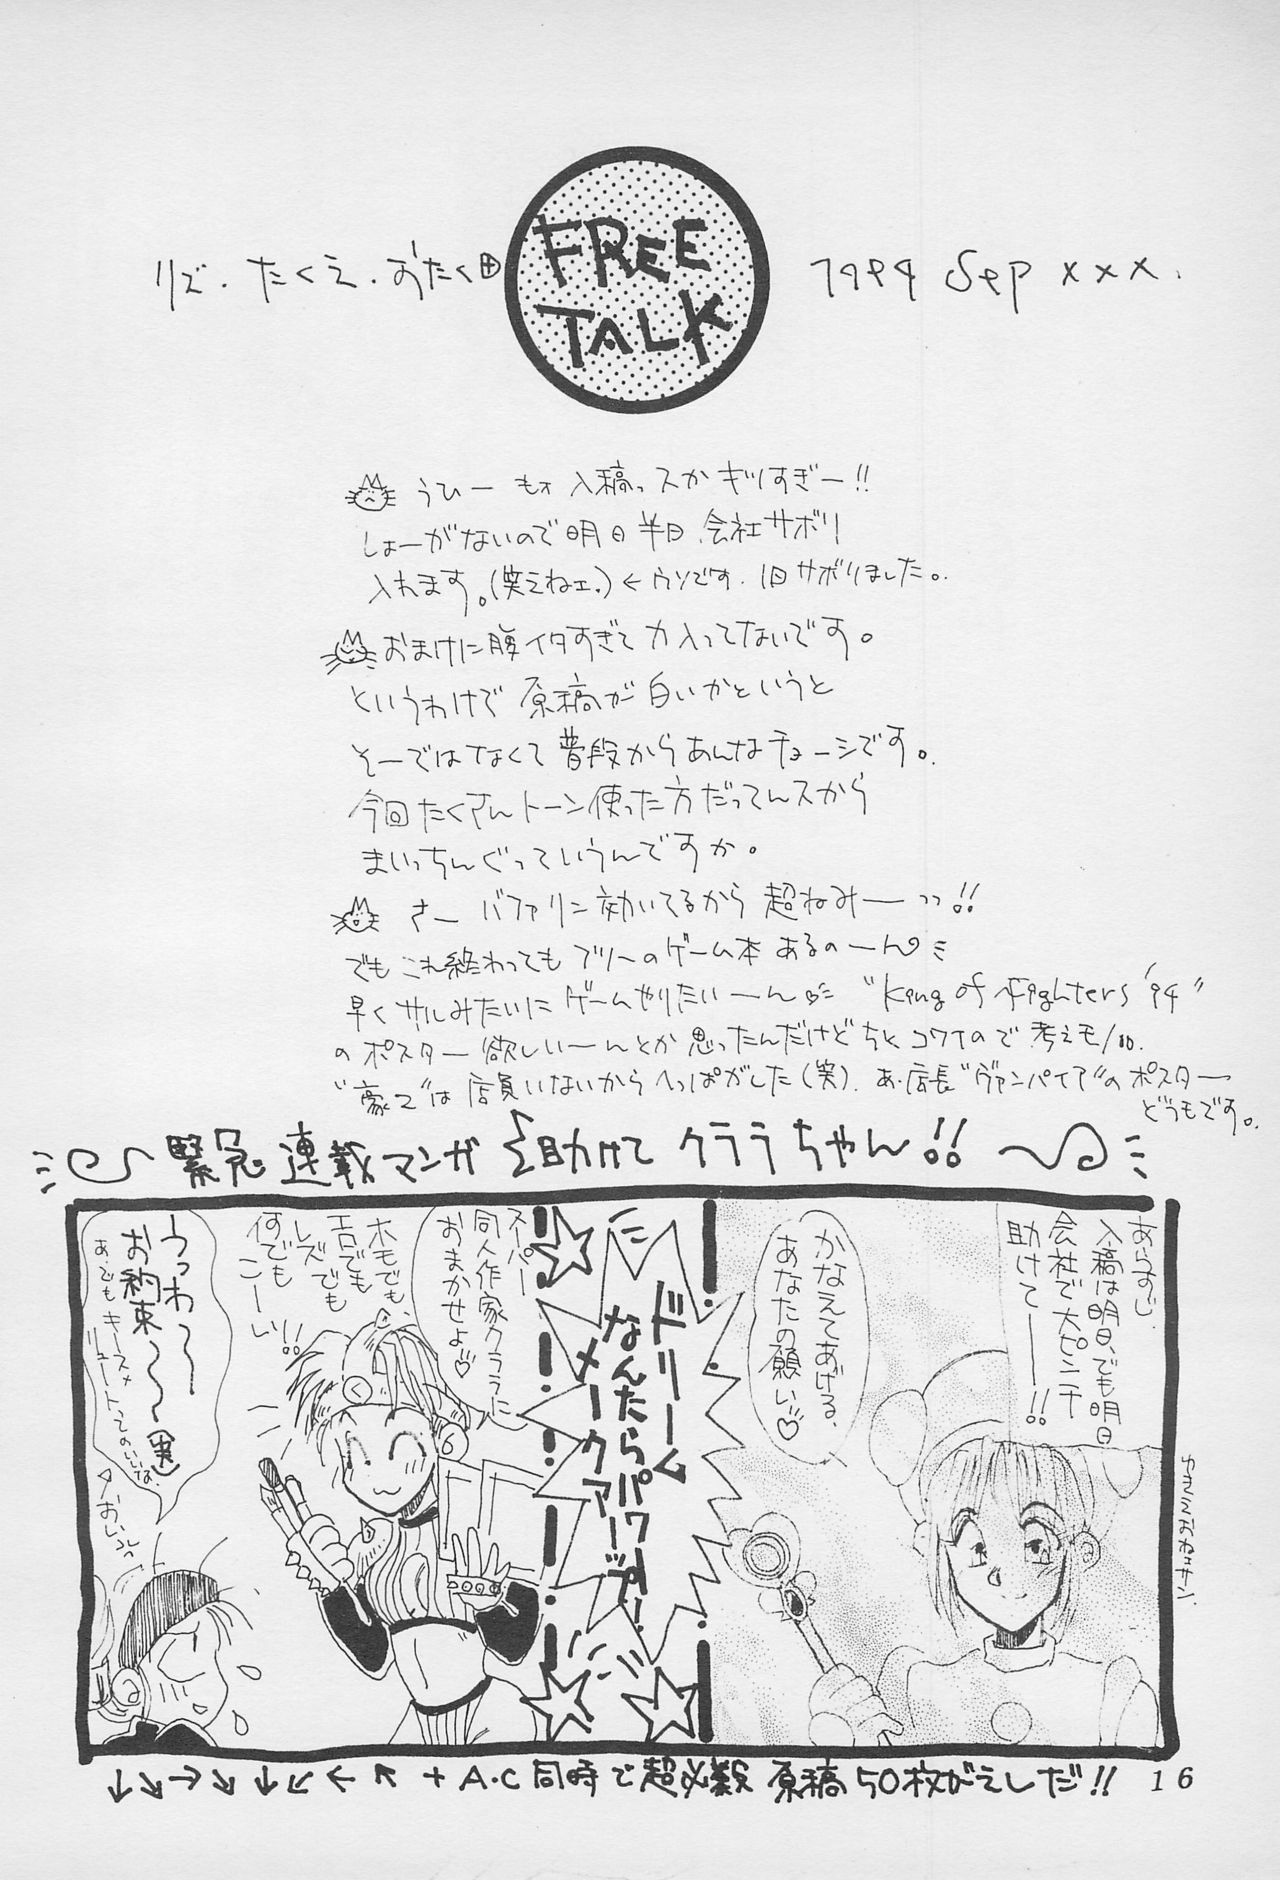 FREE
TALK
リズ・たくえ・おたく
1994 Sep xxx.
うひー もォ 入稿っスかギリすぎー!!
しょーがないので明日半日、会社サボリ
入れます。(笑えねェ.)←ウソです. 1日サボりました。
おまけに腹イタすぎて力入ってないです。
というわけで 原稿が白いかというと
そーではなくて普段からあんなチョーシです。
今回たくさんトーン使った方だってんスから
まいっちんぐっていうんですか。
さー バファリン効いてるから 超ねみーっっ!!
でもこれ終わってもフリーのゲーム本あるのーん
早くサルみたいにゲームやりたいーん "King of Fighters '94"
のポスター欲しいーんとか思ったんだけどちとコワイので考えモノ.
"豪2"は店員いないからへっぱがした(笑). あ、店長"ヴァンパイア"のポスター
どうもです。
緊急連載マンガ 助けて クララちゃん!!
あらすじ
入稿は明日、でも明日
会社で大ピンチ
助けてーーー!!
かなえてあげる、
あなたの願い♡
ドリーム
なんたらパワー!
メークアーップ!
スーパー
同人作家クララに
おまかせよ♡
ホモでも、
エロでも
レズでも
何でも
こーい!!
うっわ〜〜
お約束〜〜(実)
あ、でも
↓↘→↘↓↙←↖+A・C同時で超必殺 原稿50枚がえしだ!!
16